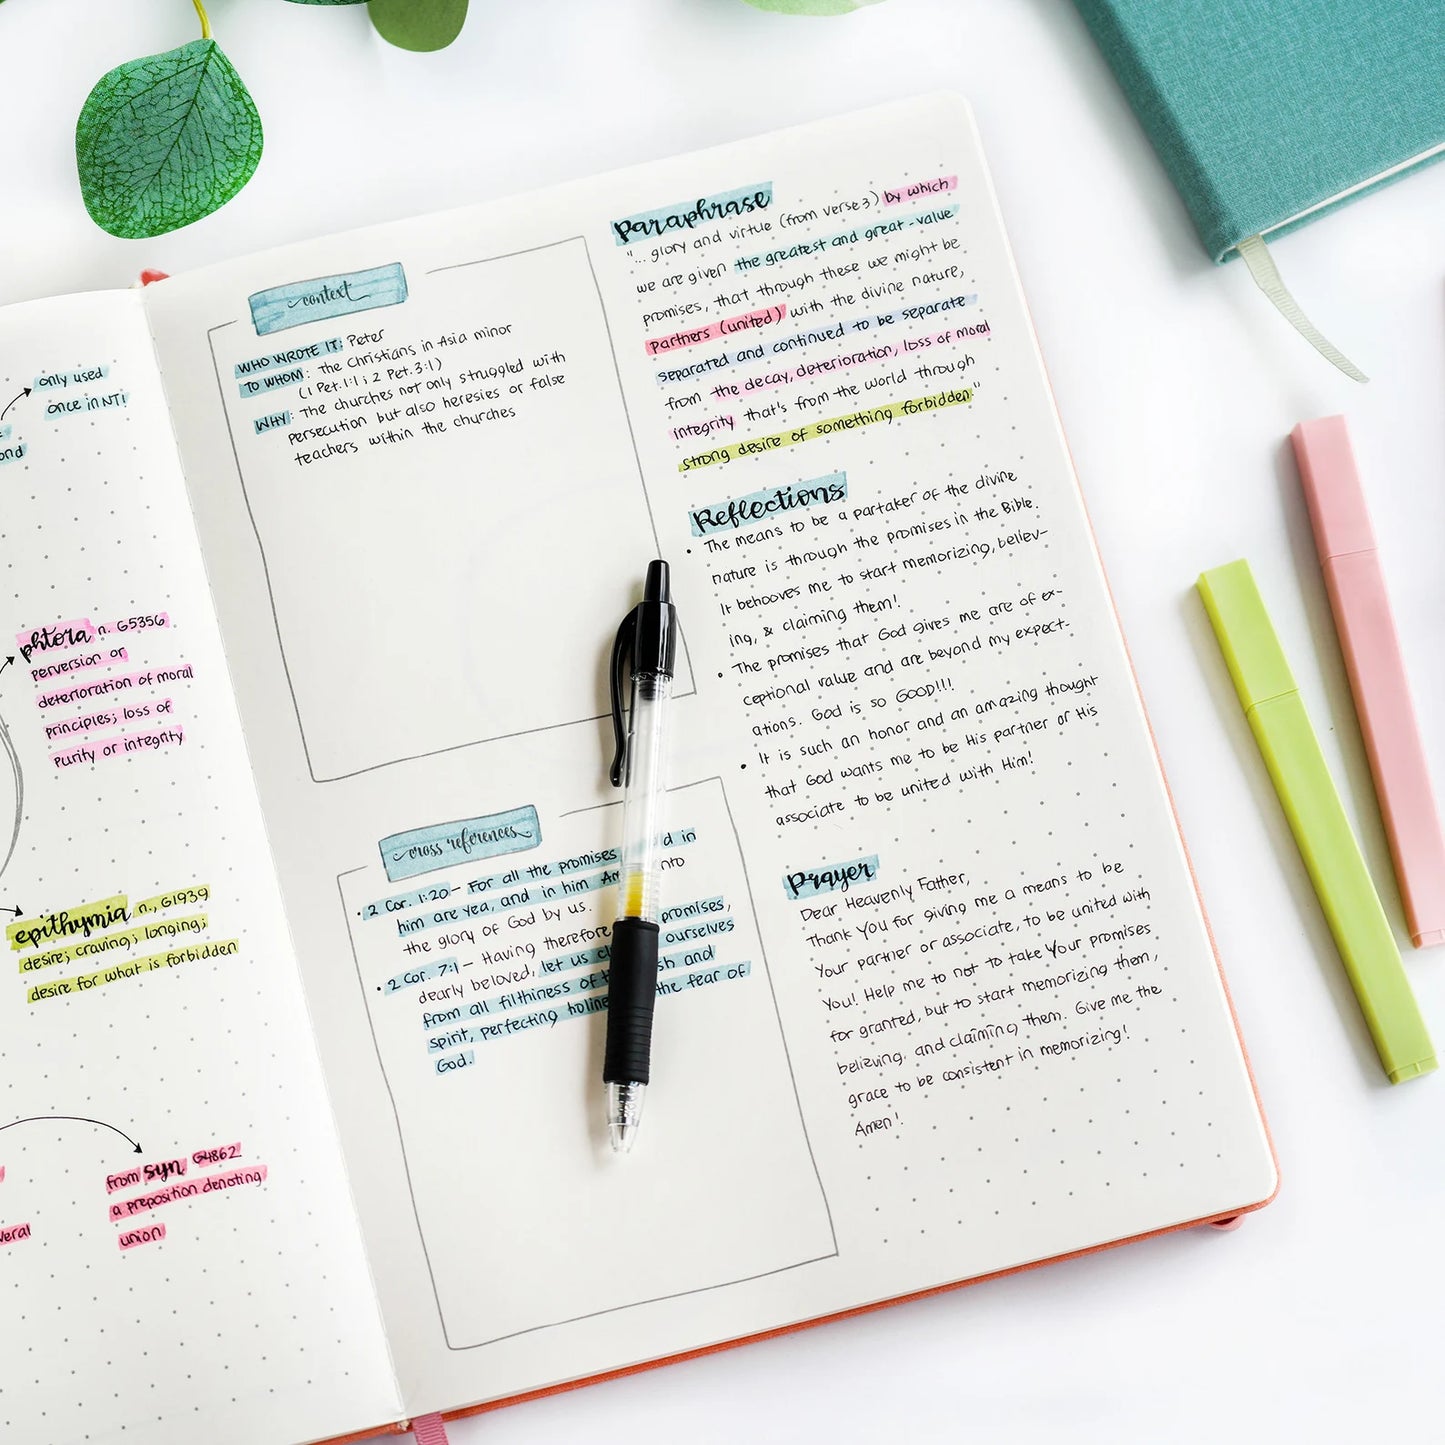 only used
once in NT!
ond
phtora n. G5356
perversion or
deterioration of moral
principles; loss of
purity or integrity
epithymia n., G1939
desire; craving; longing;
desire for what is forbidden
from syn G4862
a preposition denoting
union
veral
context
WHO WROTE IT: Peter
TO WHOM: The Christians in Asia minor
(1 Pet. 1:1; 2 Pet. 3:1)
WHY: The churches not only struggled with
persecution but also heresies or false
teachers within the churches
cross references
• 2 Cor. 1:20 - For all the promises d in
him are yea, and in him Am nto
the glory of God by us.
• 2 Cor. 7:1 - Having therefore promises,
dearly beloved, let us cl ourselves
from all filthiness of t sh and
spirit, perfecting holine the fear of
God.
Paraphrase
"... glory and virtue (from verse 3) by which
we are given the greatest and great-value
promises, that through these we might be
partners (united) with the divine nature,
separated and continued to be separate
from the decay, deterioration, loss of moral
integrity that's from the world through
strong desire of something forbidden."
Reflections
• The means to be a partaker of the divine
nature is through the promises in the Bible.
It behooves me to start memorizing, believ-
ing, & claiming them!
• The promises that God gives me are of ex-
ceptional value and are beyond my expect-
ations. God is so GOOD!!!
• It is such an honor and an amazing thought
that God wants me to be His partner or His
associate to be united with Him!
Prayer
Dear Heavenly Father,
Thank You for giving me a means to be
Your partner or associate, to be united with
You! Help me to not to take Your promises
for granted, but to start memorizing them,
believing, and claiming them. Give me the
grace to be consistent in memorizing!
Amen!